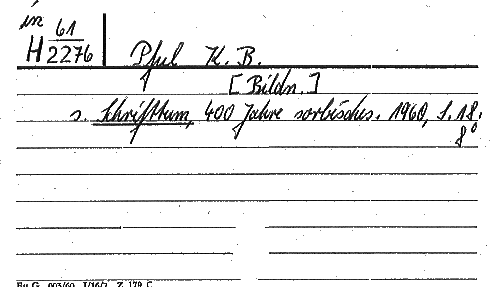 in
H 61/2276 Pful K. B.
[Bildn.]
s. Schrifttum, 400 Jahre sorbisches. 1960, S. 18.
8°
Bu G 003/60 I/16/7 Z 179 C